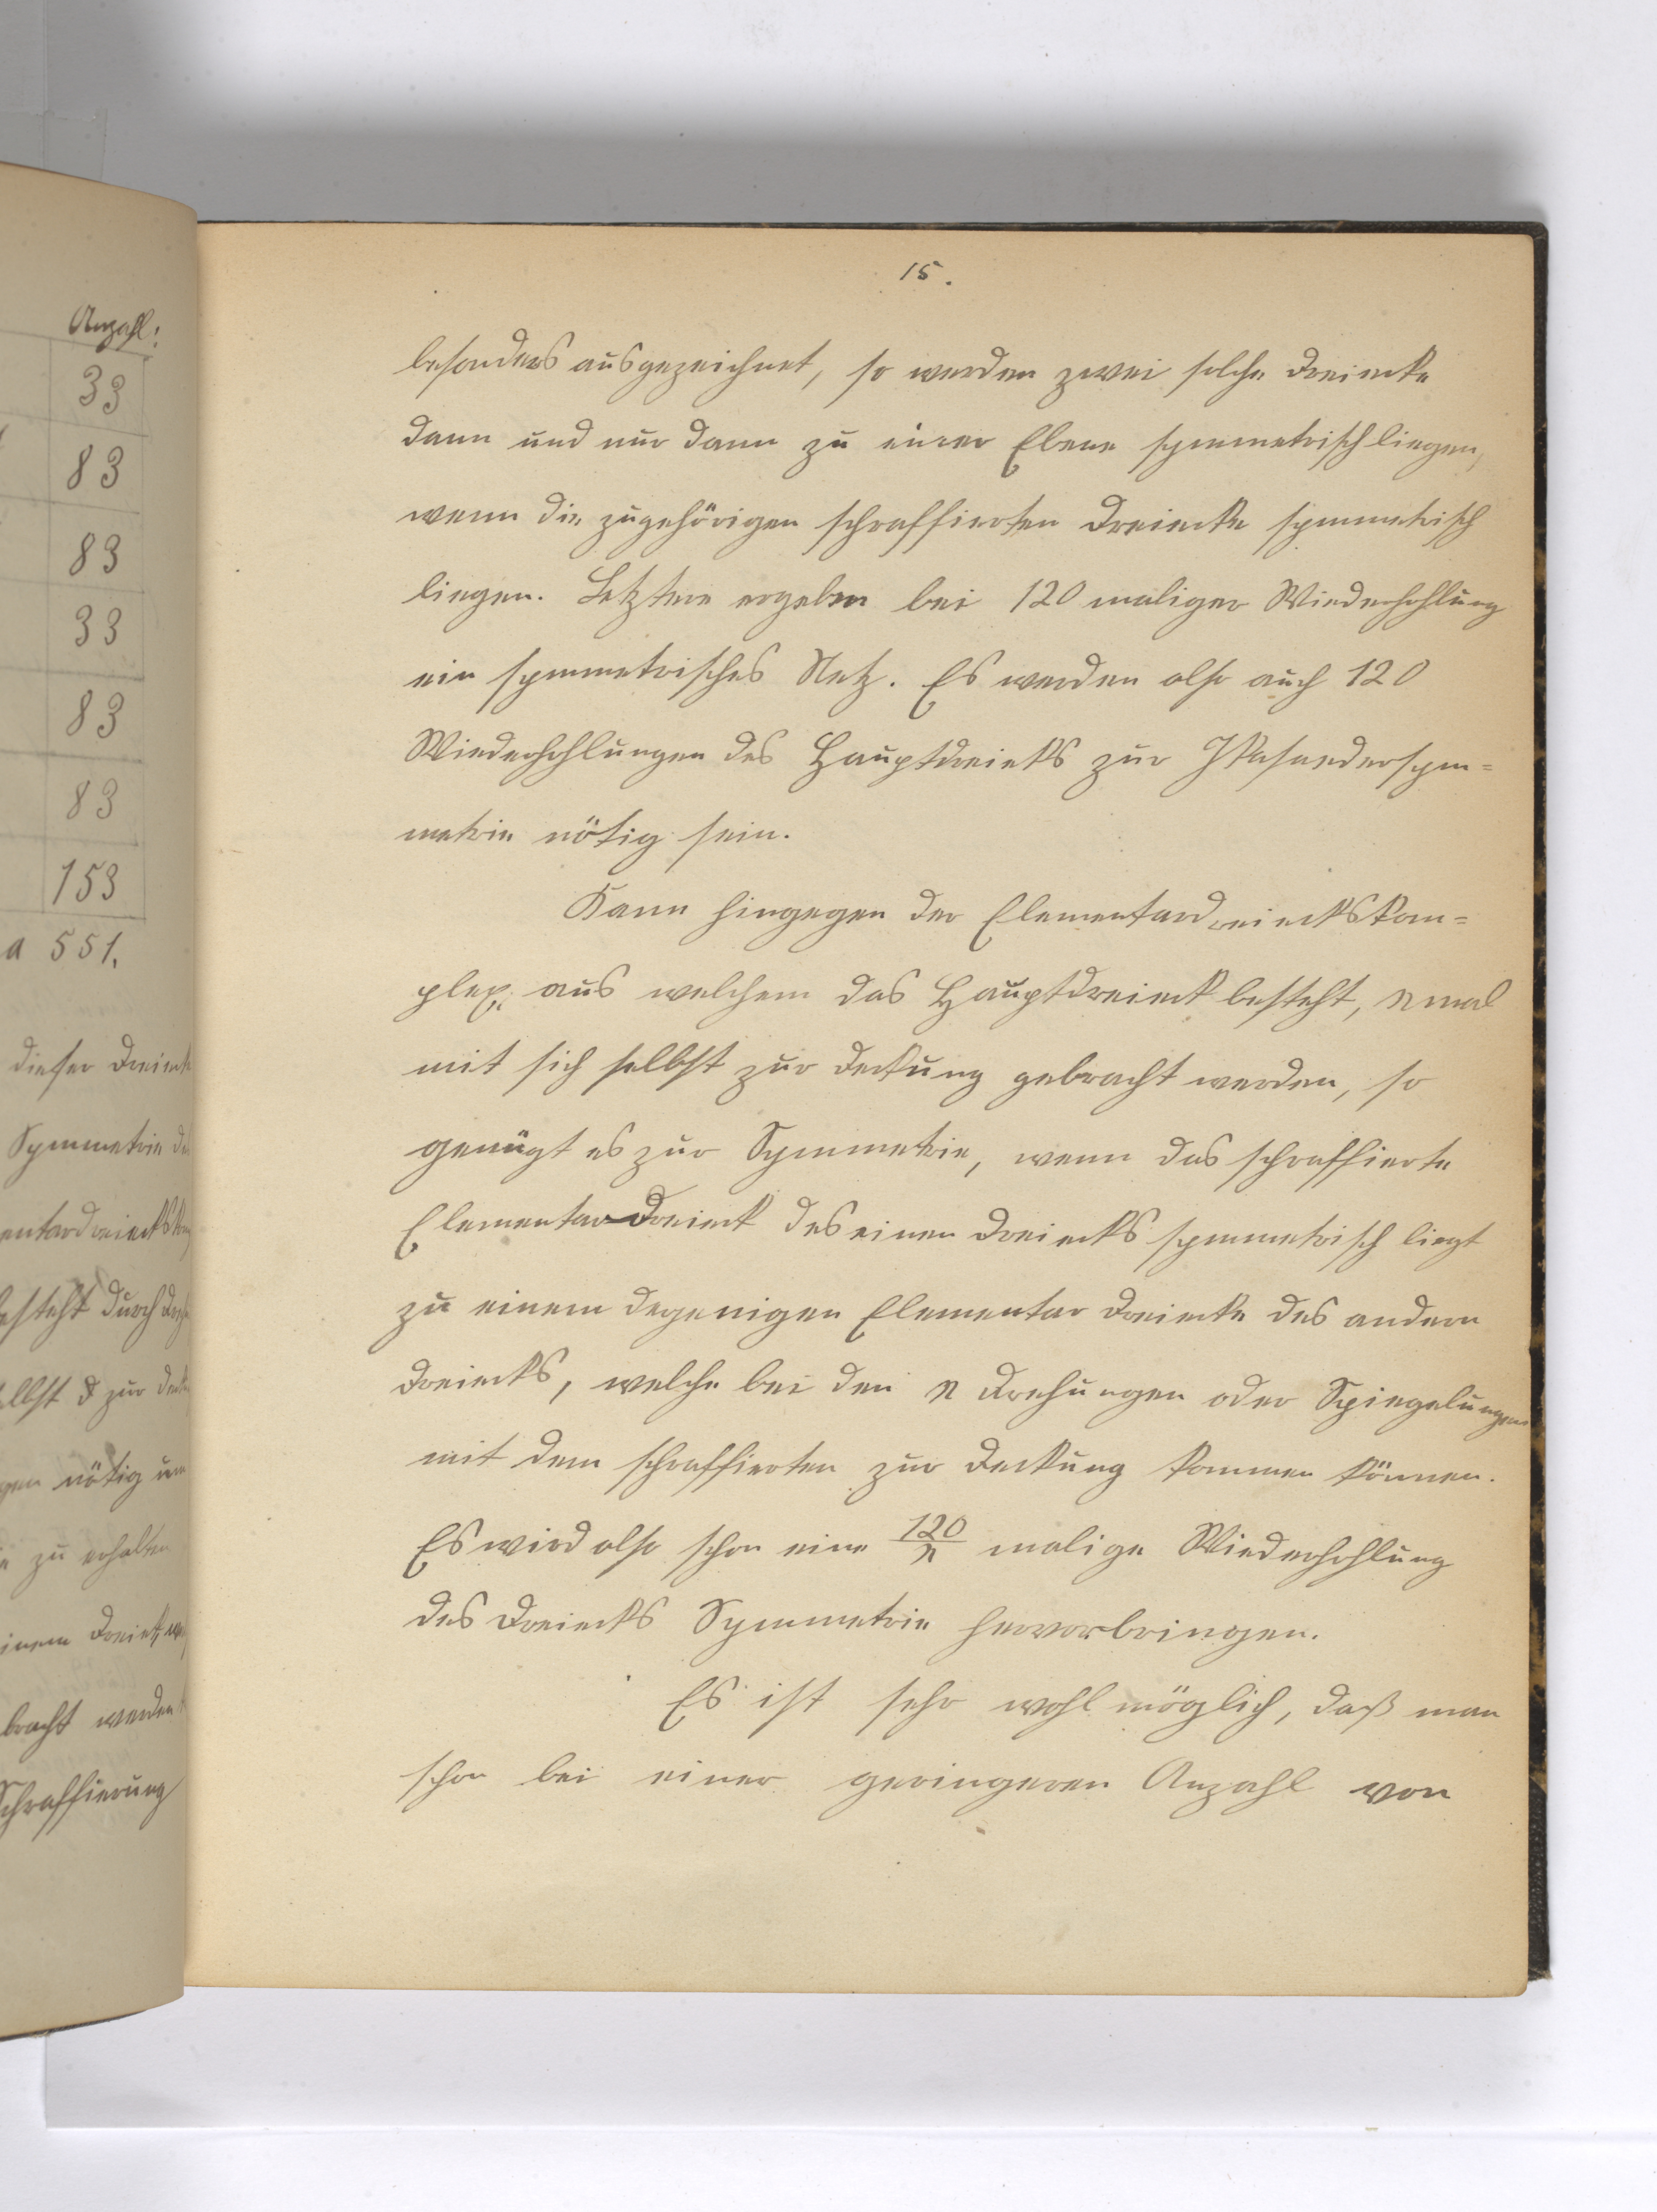 Anzahl:
33
83
83
33
83
83
153
a 551.
dieser Dreiecke
Symmetrie
durch
zur
nötig um
zu erhalten
bracht werden
Schraffierung
15.
besonders ausgezeichnet, so werden zwei solche Dreiecke
dann und nur dann zu einer Ebene symmetrisch liegen,
wenn die zugehörigen schraffierten Dreiecke symmetrisch
liegen. Letztere ergeben bei 120 maliger Wiederhohlung
ein symmetrisches Netz. Es werden also auch 120
Wiederhohlungen des Hauptdreiecks zur Ikosaedersym=
metrie nötig sein.
Kann hingegen der Elementardreieckskom=
plex, aus welchem das Hauptdreieck besteht, n mal
mit sich selbst zur Deckung gebracht werden, so
genügt es zur Symmetrie, wenn das schraffierte
Elementar-Dreieck des einen Dreiecks symmetrisch liegt
zu einem degenigen Elementar Dreiecke des andern
Dreiecks, welche bei den n Drehungen oder Spiegelungen
mit dem schraffierten zur Deckung kommen können.
Es wird also schon eine 120/n malige Wiederhohlung
des Dreiecks Symmetrie hervorbringen.
Es ist sehr wohl möglich, daß man
schon bei einer geringeren Anzahl von